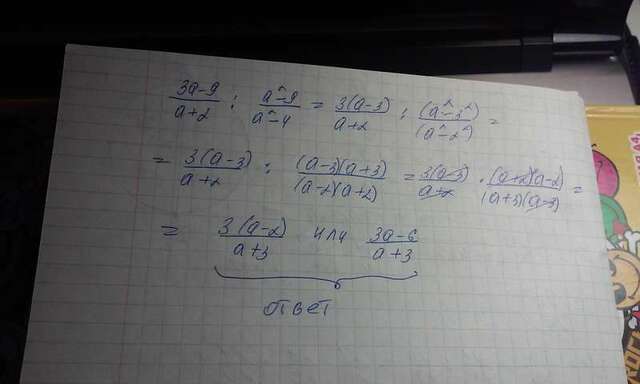 (3a-9)/(a+2) : (a^2-9)/(a^2-4) = 3(a-3)/(a+2) : (a^2-3^2)/(a^2-2^2) =
= 3(a-3)/(a+2) : (a-3)(a+3)/(a-2)(a+2) = 3(a-3)/(a+2) · (a+2)(a-2)/(a+3)(a-3) =
= 3(a-2)/(a+3) или (3a-6)/(a+3)
ответ